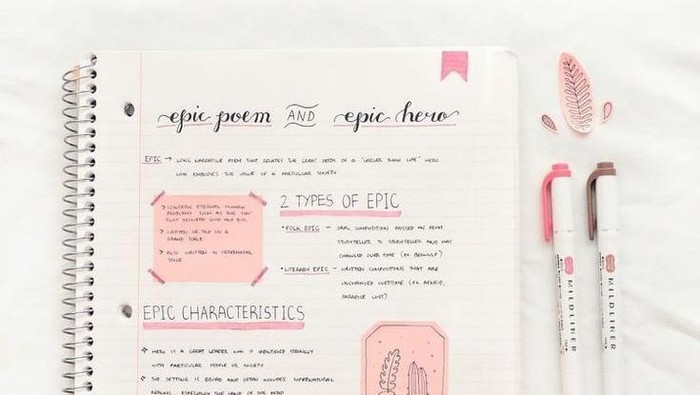 epic poem AND epic hero
EPIC → LONG NARRATIVE POEM THAT RELATES THE GREAT DEEDS OF A "LARGER THAN LIFE" HERO
WHO EMBODIES THE VALUE OF A PARTICULAR SOCIETY
> CONCERN ETERNAL HUMAN
PROBLEMS SUCH AS THE
GOOD AND EVIL
> WRITTEN OR TOLD IN A
GRAND STYLE
> ALSO WRITTEN IN CEREMONIAL
STYLE
2 TYPES OF EPIC
• FOLK EPIC - ORAL COMPOSITION PASSED ON FROM
STORYTELLER TO STORYTELLER AND HAS
CHANGED OVER TIME (EX. BEOWULF)
• LITERARY EPIC - WRITTEN COMPOSITIONS THAT ARE
UNCHANGED OVERTIME (EX. AENEID,
PARADISE LOST)
EPIC CHARACTERISTICS
HERO IS A GREAT LEADER WHO IS IDENTIFIED STRONGLY
WITH PARTICULAR PEOPLE OR SOCIETY
THE SETTING IS BROAD AND OFTEN INCLUDES SUPERNATURAL
REALMS, ESPECIALLY THE LAND OF THE DEAD
MILDLINER
MILDLINER